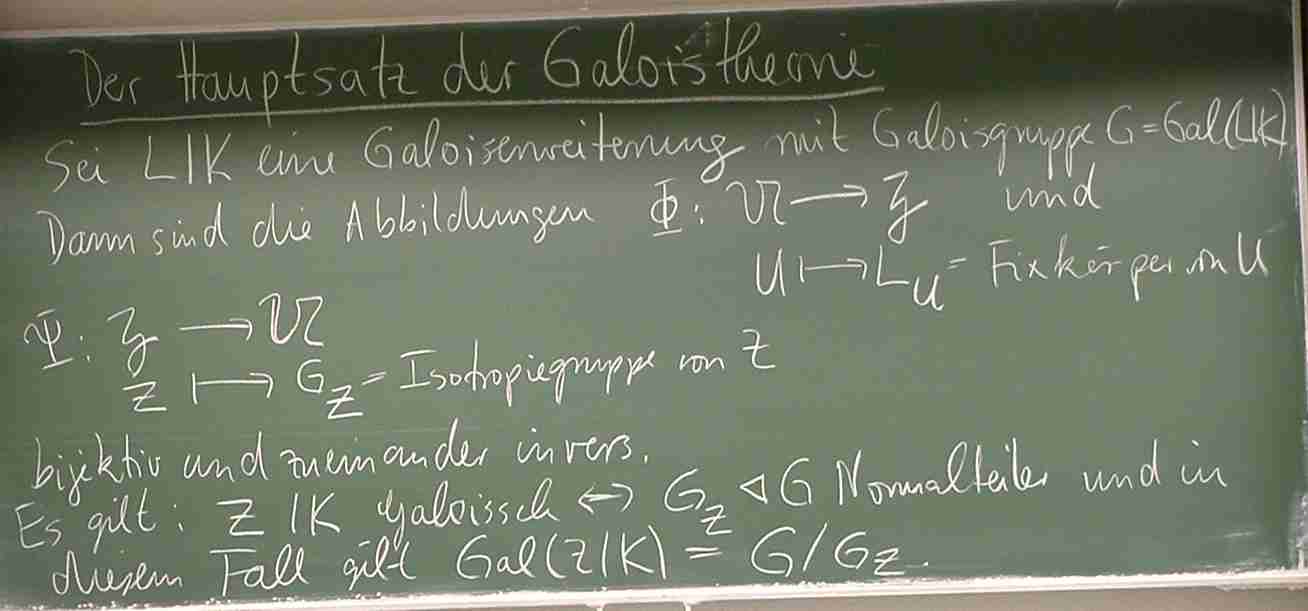 Der Hauptsatz der Galoistheorie
Sei L|K eine Galoiserweiterung mit Galoisgruppe G=Gal(L|K)
Dann sind die Abbildungen Φ: 𝔘 → 𝔷 und
U ↦ L_U = Fixkörper von U
Ψ: 𝔷 → 𝔘
Z ↦ G_Z = Isotropiegruppe von Z
bijektiv und zueinander invers.
Es gilt: Z|K galoissch ↔ G_Z ⊲ G Normalteiler und in
diesem Fall gilt Gal(Z|K) = G/G_Z.